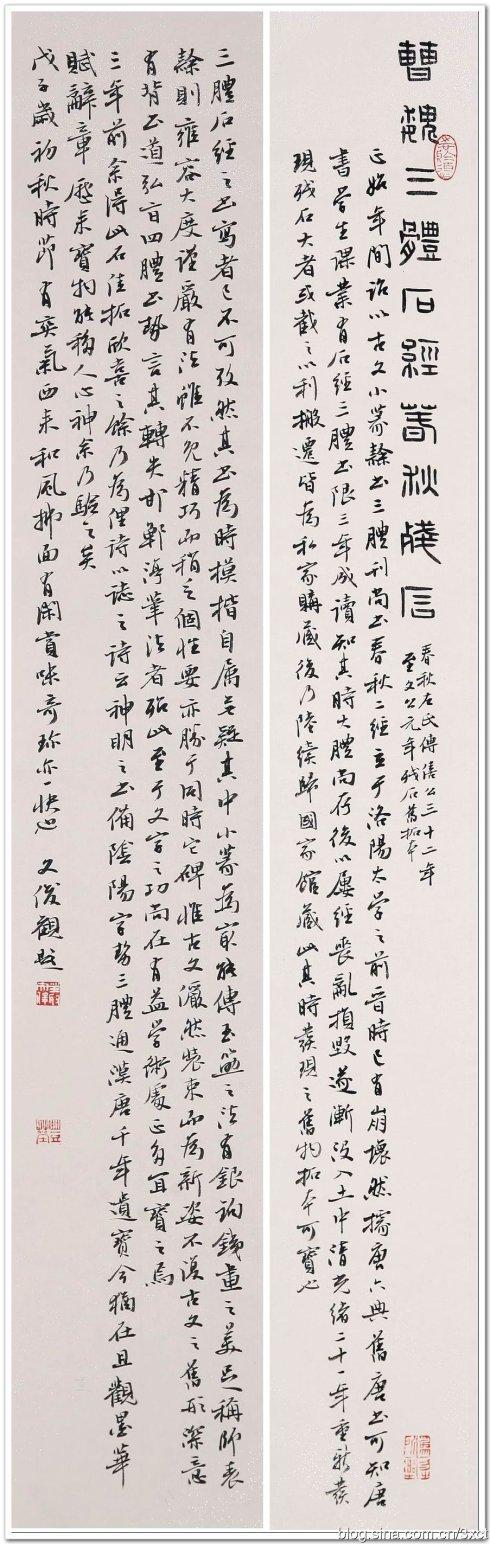 曹魏三體石經春秋殘石
春秋左氏傳僖公三十二年
至文公元年殘石舊拓本
正始年間詔以古文小篆隸書三體刊尚書春秋二經立于洛陽太學之前晉時已有崩壞然據唐六典舊唐書可知唐
書學生課業有石經三體書限三年成讀知其時大體尚存後以屢經喪亂損毀遂漸沒入土中清光緒二十一年重新發
現殘石大者或截之以利搬遷皆為私家購藏後乃陸續歸國家館藏此其時發現之舊物拓本可寶也
三體石經之書寫者已不可考然其書為時模楷自屬無疑其中小篆為最能傳玉箸之法有銀鉤鐵畫之美足稱師表
隸則雍容大度謹嚴有法雖不免精巧而稍乏個性要亦勝于同時它碑惟古文儼然裝束而為新姿不復古文之舊形深意
有背書道弘旨四體書勢言其轉失邯鄲淳筆法者殆此至于文字之功尚在有益學術處正多宜寶之焉
三年前余得此石佳拓欣喜之餘乃為俚詩以誌之詩云神明之書備陰陽字勢三體通漢唐千年遺寶今猶在且觀墨華
賦辭章歷來寶物能移人心神余乃驗之矣
戊子歲初秋時節有爽氣西來和風拂面有閑賞味奇珍亦一快也 文俊觀題
blog.sina.com.cn/sxct